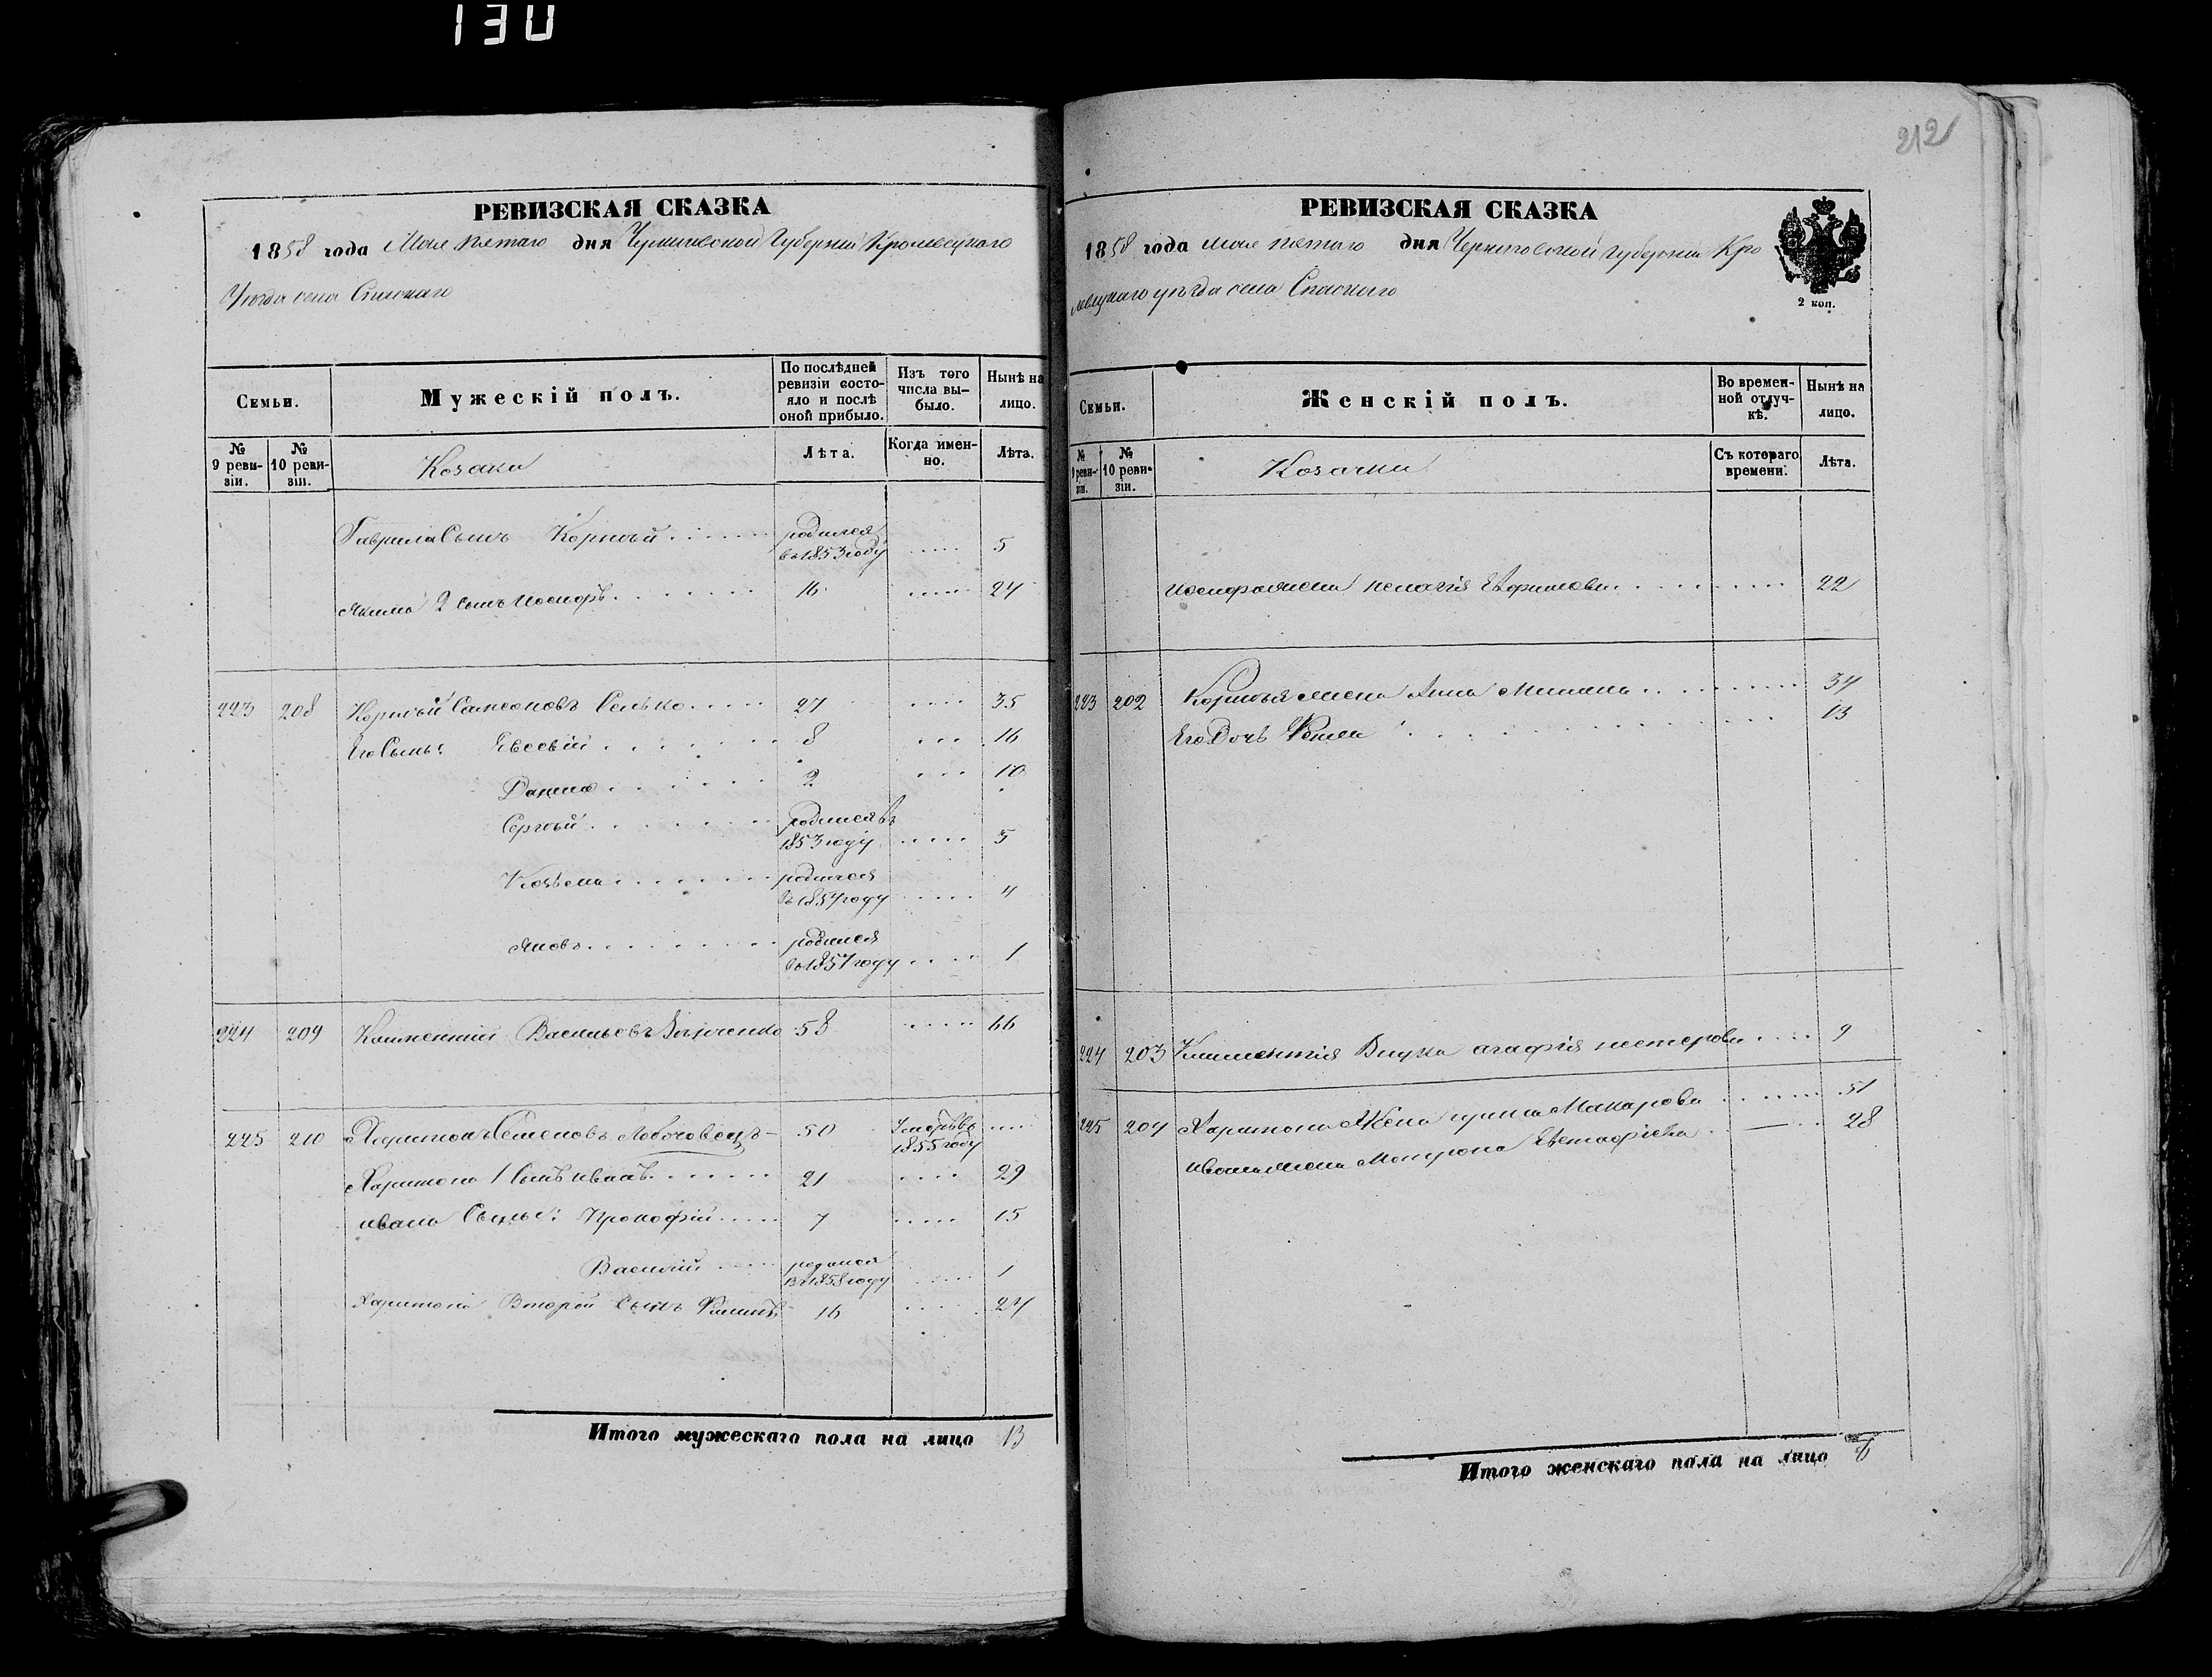 130
РЕВИЗСКАЯ СКАЗКА
1858 года Мая пятаго дня Черниговской Губерніи Кролевецкаго
Уѣзда села Спаскаго
Семьи.
Мужескій полъ.
По послѣдней ревизіи состояло и послѣ оной прибыло.
Изъ того числа выбыло.
Нынѣ на лицо.
№ 9 ревизіи.
№ 10 ревизіи.
Козаки
Лѣта.
Когда именно.
Лѣта.
Гаврила Сынъ Корнѣй родился въ 1853 году 5
Якима 2 сынъ Иосифъ 16 24
223 208 Корнѣй Самсоновъ 27 35
Его Сынъ: Евсевій 8 16
Данило 2 10
Сергѣй родился въ 1853 году 5
Козьма родился въ 1854 году 4
Яковъ родился въ 1857 году 1
224 209 Климентій Васильевъ 58 66
225 210 Харитонъ Семеновъ Лобочовецъ 50 Умеръ въ 1855 году
Харитона 1 Сынъ иванъ 21 29
ивана Сыны: Прокофій 7 15
Василій родился въ 1858 году 1
Харитона Второй Сынъ Филипъ 16 24
Итого мужескаго пола на лицо 13
212
РЕВИЗСКАЯ СКАЗКА
1858 года мая пятаго дня Черниговской губерніи Кро
левецкаго уѣзда села Спаскаго
2 коп.
Семьи.
Женскій полъ.
Во временной отлучкѣ.
Нынѣ на лицо.
№ 9 ревизіи.
№ 10 ревизіи.
Козачки
Съ котораго времени.
Лѣта.
Иосифа жена пелагія Ефимова 22
223 202 Корнѣя жена Анна 34
Его Дочь 13
224 203 Климентія Внука агафія нестерова 9
225 204 Харитона Жена Макарова 51
ивана жена Евстафіева 28
Итого женскаго пола на лицо 6